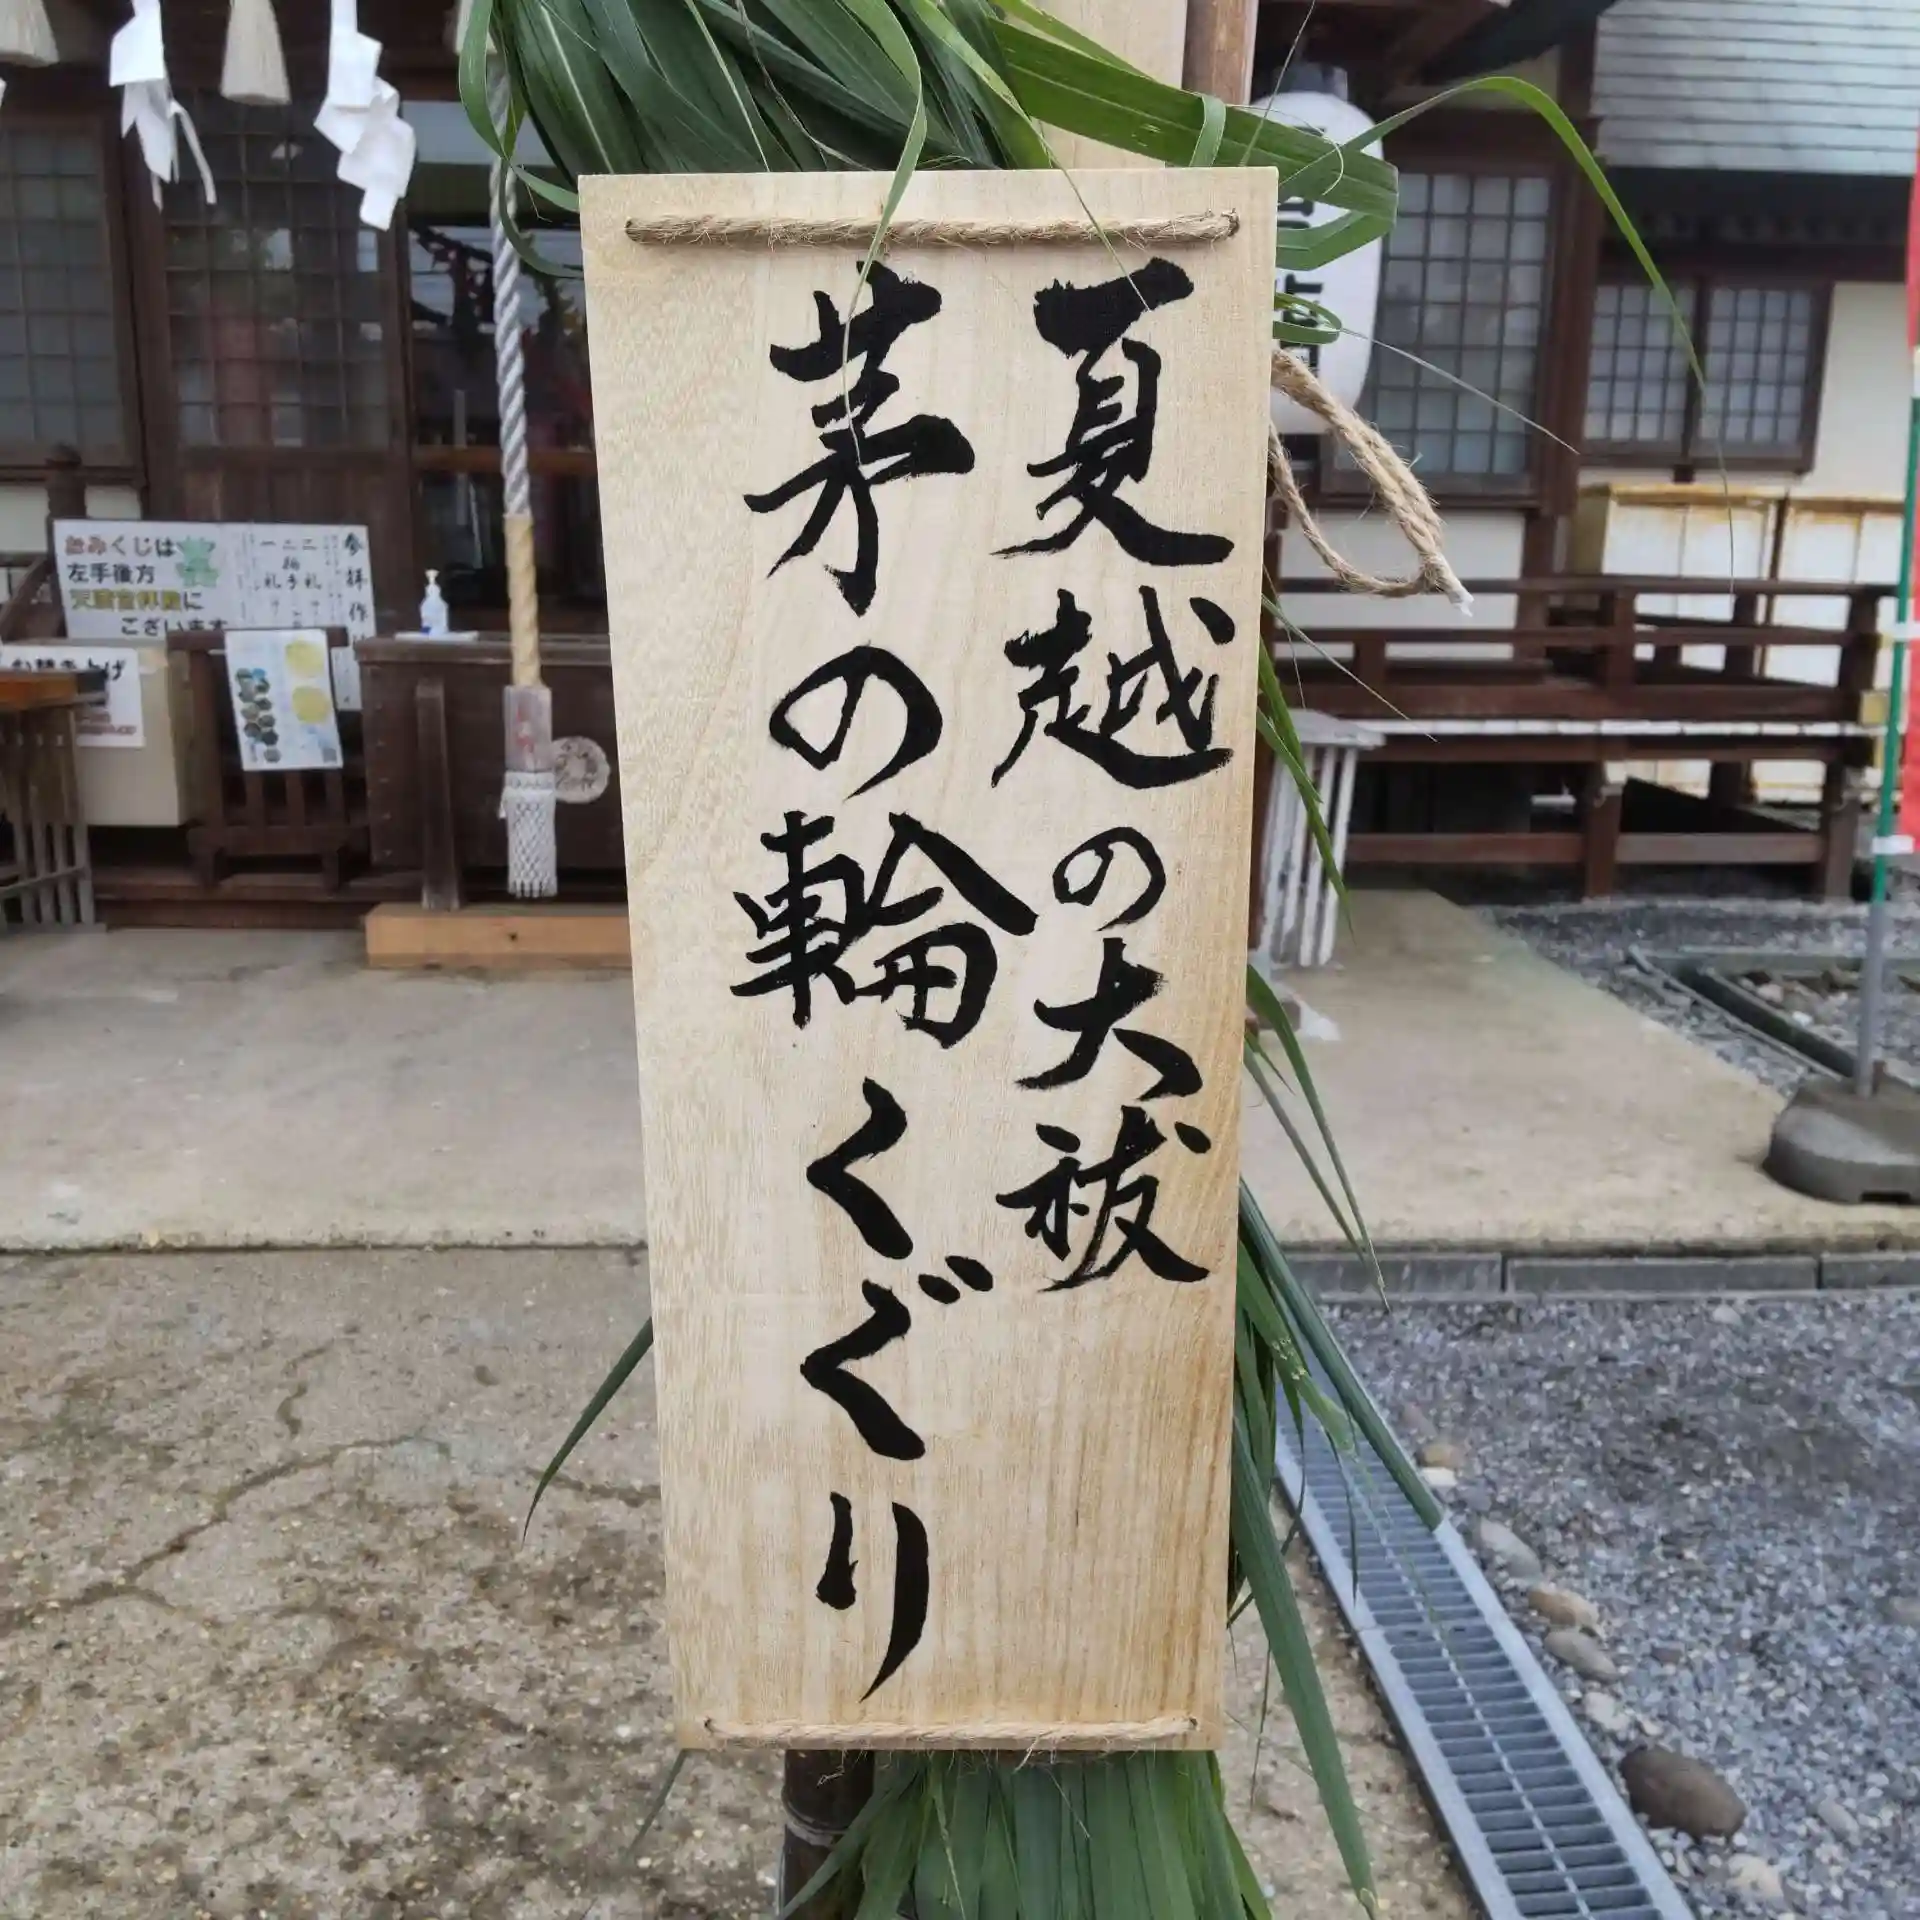 夏越の大祓
茅の輪くぐり
おみくじは
左手後方
ございます
二礼
二拍手
一礼